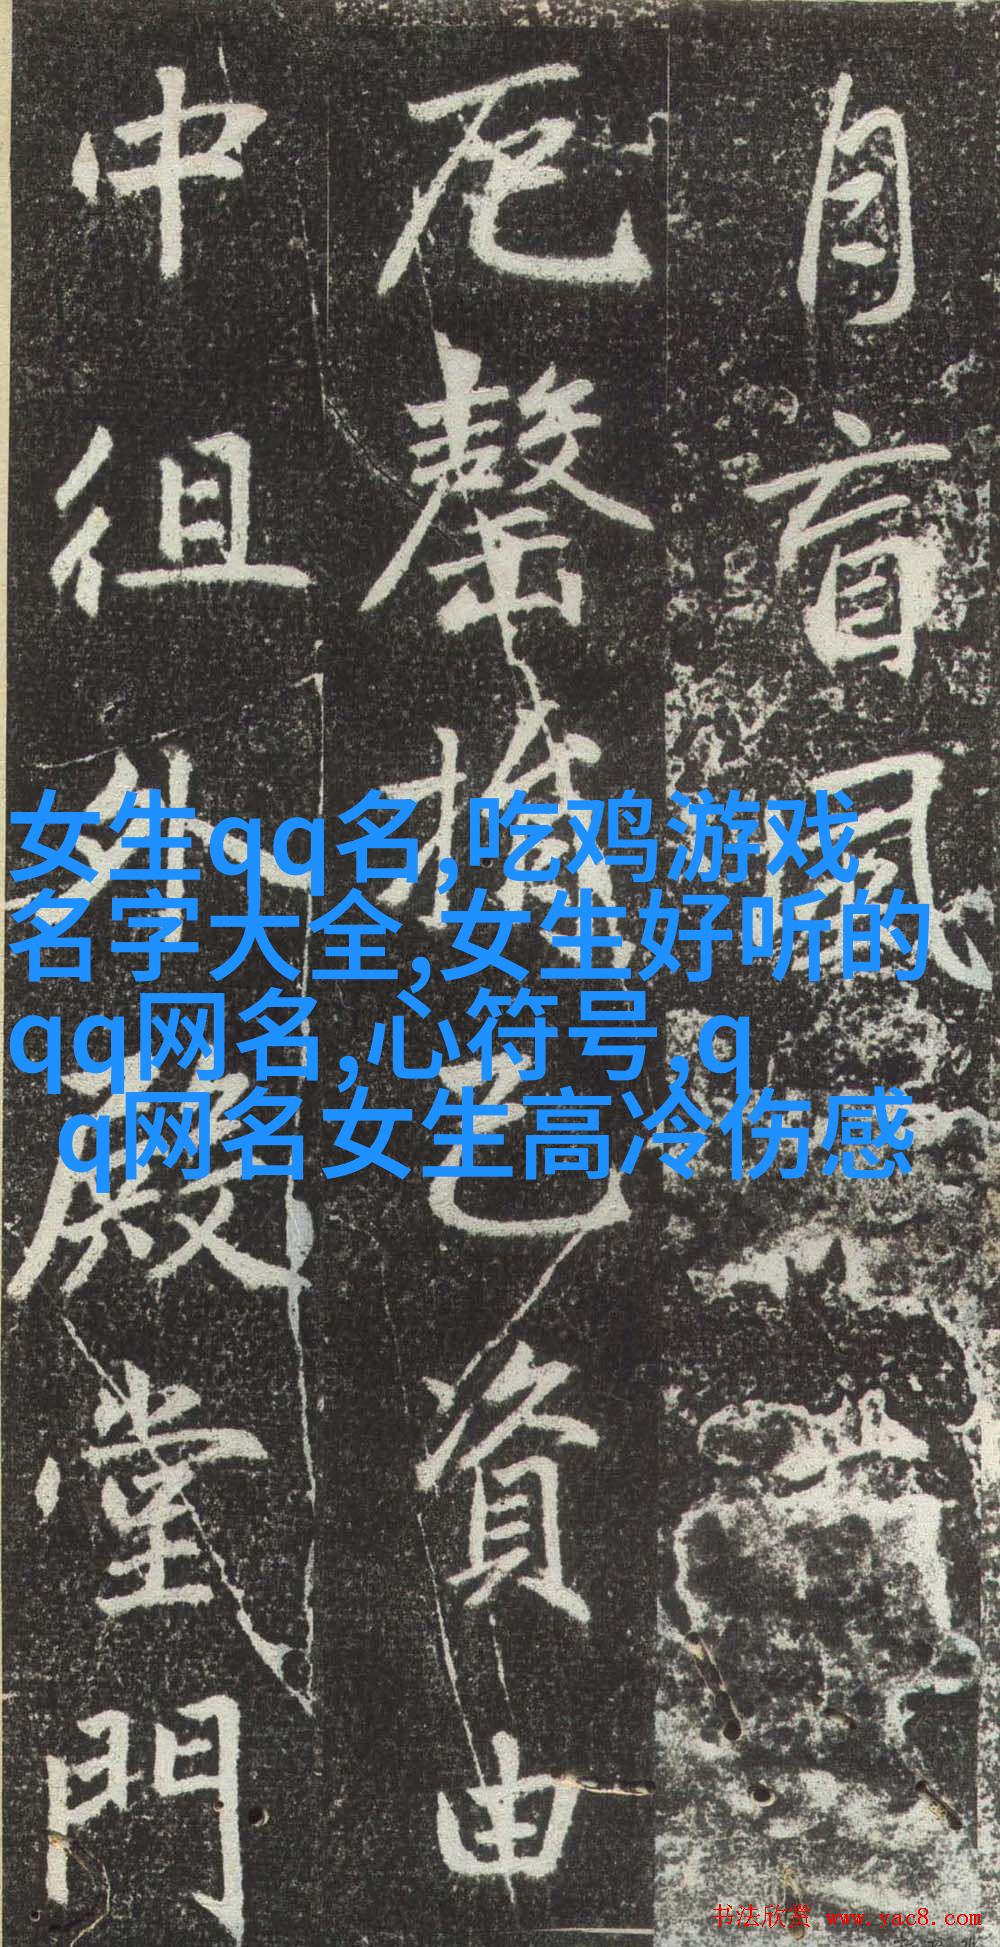 自盲風
罄已資由
中徂外堂門
女生qq名,吃鸡游戏
名字大全,女生好听的
qq网名,心符号,q
q网名女生高冷伤感
书法欣赏 www.yac8.com